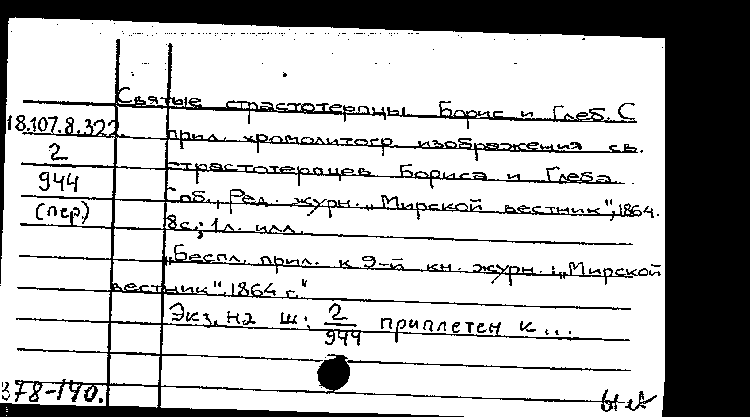 Святые страстотерпцы Борис и Глеб. С
18.107.8.322. прил. хромолитогр. изображения св.
2
944
страстотерпцев Бориса и Глеба.
(пер.)
Спб., Ред. журн. „Мирской вестник", 1864.
8с.; 1л. илл.
„Беспл. прил. к 9-й кн. журн.: „Мирской
вестник", 1864 г."
Экз. на ш: 2/944 приплетен к...
378-140.